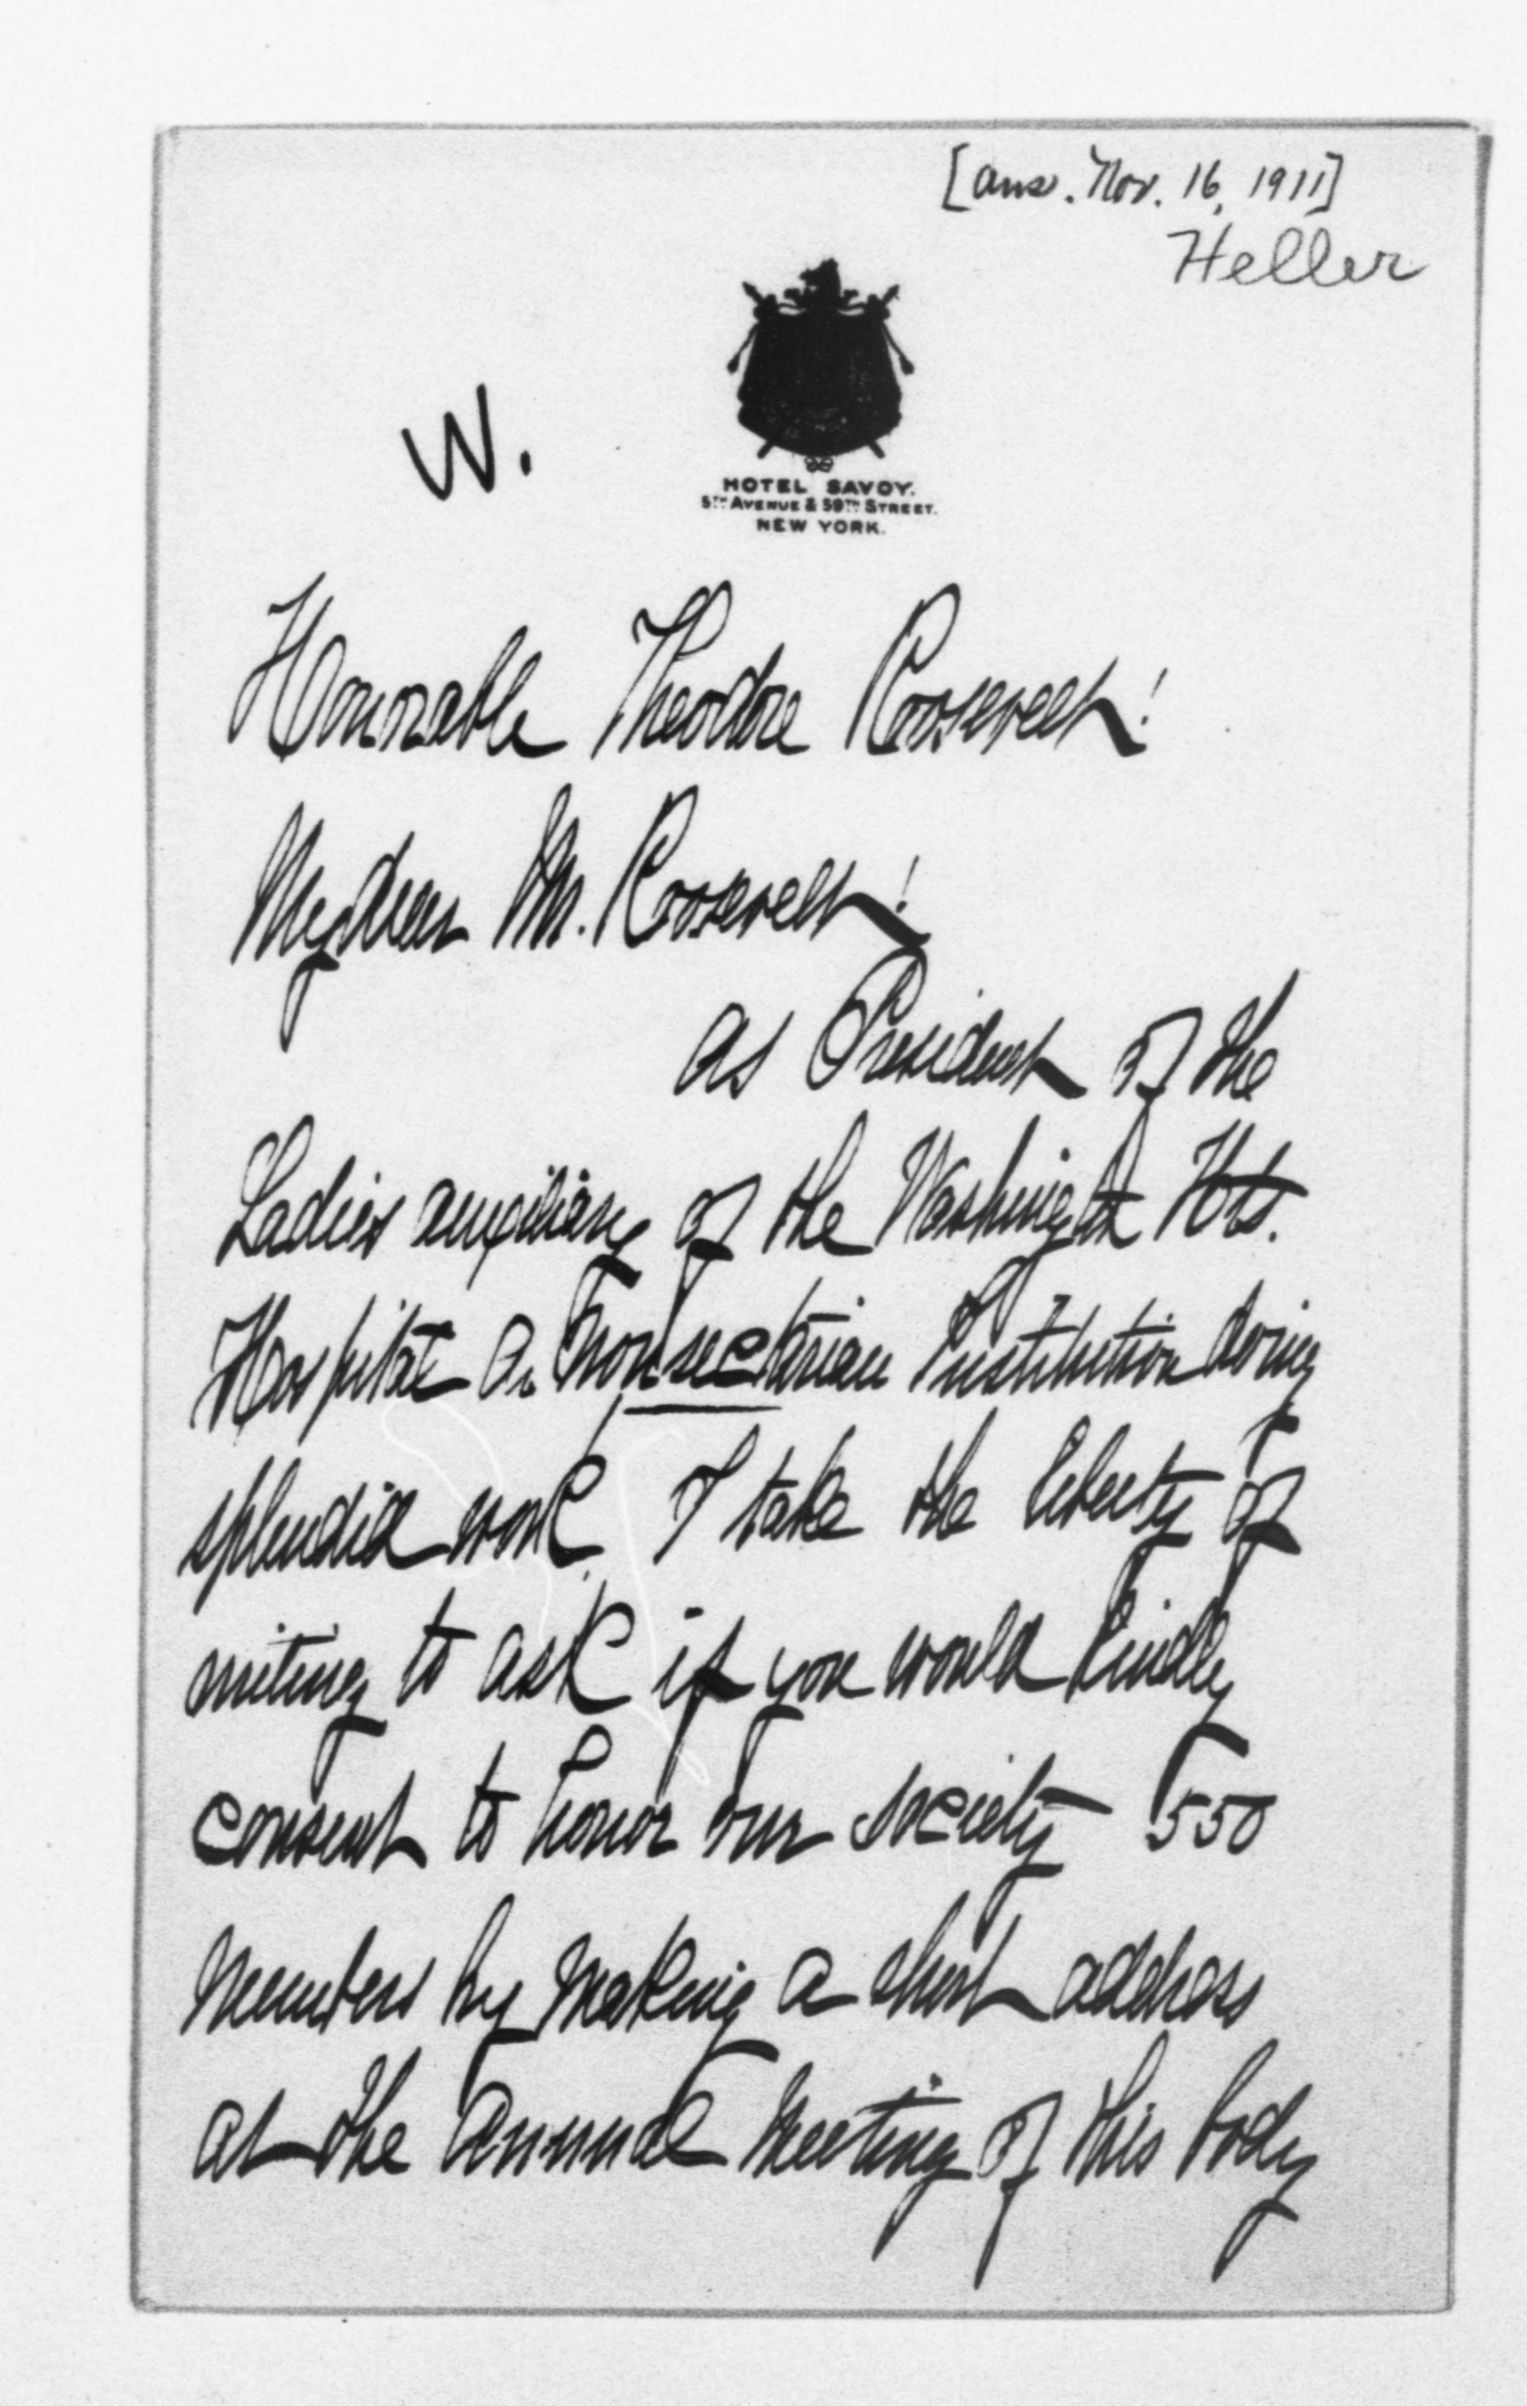 [ans. Nov. 16, 1911]
Heller
W.
HOTEL SAVOY.
5TH AVENUE & 59TH STREET.
NEW YORK.
Honorable Theodore Roosevelt!
My dear Mr. Roosevelt!
As President of the
Ladies auxiliary of the Washington Hts.
Hospital a nonsectarian Institution doing
splendid work. I take the liberty of
writing to ask if you would kindly
consent to honor our society 550
members by making a short address
at the Annual Meeting of this body